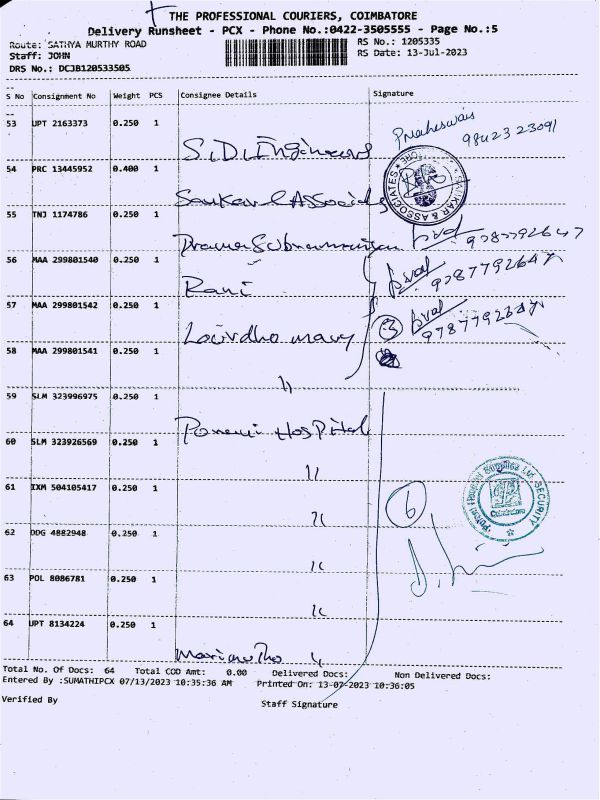 THE PROFESSIONAL COURIERS, COIMBATORE
Delivery Runsheet - PCX - Phone No.:0422-3505555 - Page No.:5
Route: SATHYA MURTHY ROAD
RS No.: 1205335
Staff: JOHN
RS Date: 13-Jul-2023
DRS No.: DCJB120533505
S No Consignment No Weight PCS Consignee Details Signature
53 UPT 2163373 0.250 1 S.D. Engineers 9842323091
54 PRC 13445952 0.400 1 Sankar & Associates
SANKAR & ASSOCIATES
55 TNJ 1174786 0.250 1 9787792647
56 MAA 299801540 0.250 1 Rani 9787792647
57 MAA 299801542 0.250 1 Lourdho mary 3 9787792647
58 MAA 299801541 0.250 1 "
59 SLM 323996975 0.250 1 Ponani Hospital
60 SLM 323926569 0.250 1 "
61 IXM 504105417 0.250 1 " 6
SECURITY
Coimbatore
62 DDG 4882948 0.250 1 "
63 POL 8086781 0.250 1 "
64 UPT 8134224 0.250 1 "
Total No. Of Docs: 64 Total COD Amt: 0.00 Delivered Docs: Non Delivered Docs:
Entered By :SUMATHIPCX 07/13/2023 10:35:36 AM Printed On: 13-07-2023 10:36:05
Verified By
Staff Signature